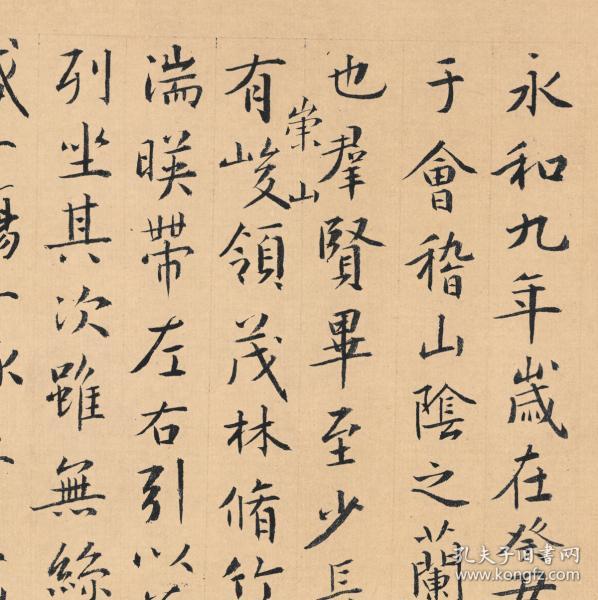 永和九年歲在癸丑
于會稽山陰之蘭
也羣賢畢至少長
崇山
有峻領茂林脩竹
湍暎帶左右引以
列坐其次雖無絲
孔夫子旧书网
www.kongfz.com